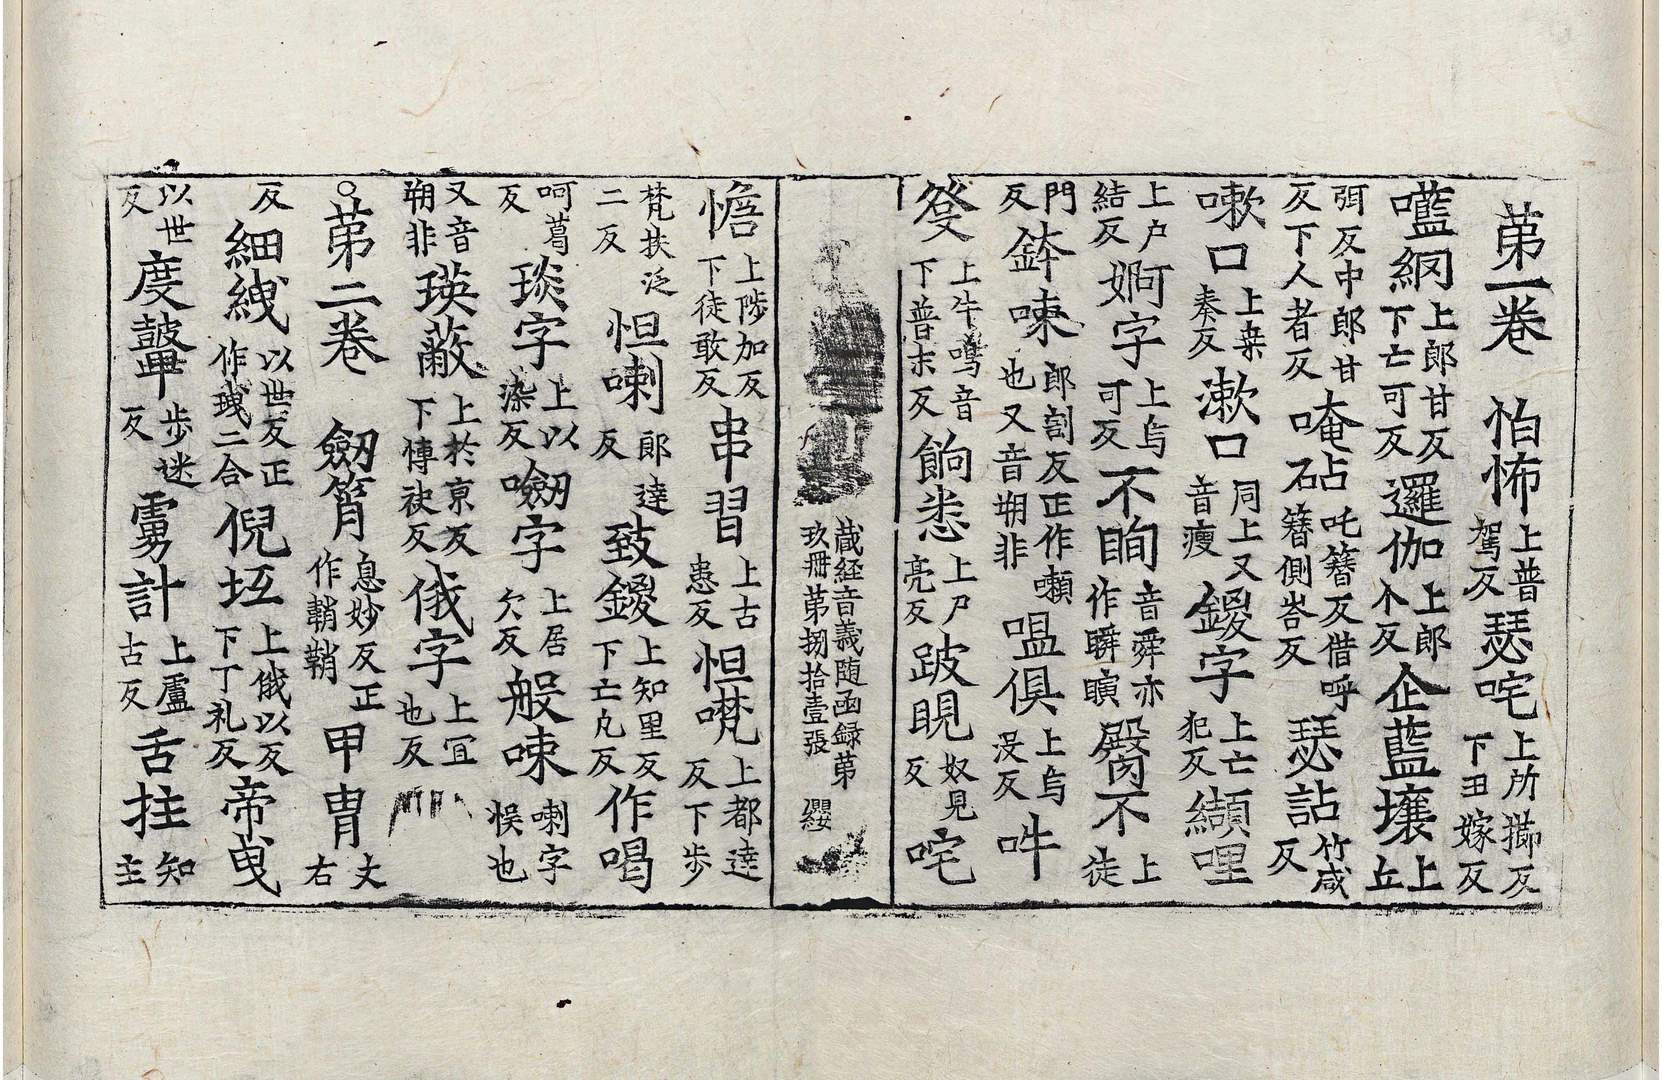 苐一卷　怕怖上普駕反瑟咤上所擳反下丑嫁反
嚂䋄上郎甘反下亡可反邏伽上郎个反企藍壤上丘
弭反中郎甘反下人者反唵砧吒簪反借呼簪側岑反瑟詀竹咸反
嗽口上桒奏反漱口同上又音瘦鑁字上亡犯反纈哩
上户結反婀字上烏可反不眴音舜亦作瞬瞚臋不上徒
門反鉢㖨郎割反正作嚹也又音朔非嗢俱上烏没反吽
癹上牛鳴音下普末反餉悉上尸亮反跛睍奴見反咤
蔵経音義随函録苐玖冊苐捌拾壹張　纓
憺上陟加反下徒敢反串習上古患反怛㘕上都達反下歩
梵扶泛二反怛喇郎達反致鑁上知里反下亡凡反作喝
呵葛反琰字上以染反㘝字上居欠反般㖨喇字悮也
又音朔非瑛蔽上於亰反下慱袂反俄字上宜也反
○苐二卷　劒筲息妙反正作鞘鞘甲胄丈右
反細絏以世反正作拽二合倪坘上儗以反下丁礼反帝曳
以世反度鼙歩迷反雩計上盧古反舌拄知主